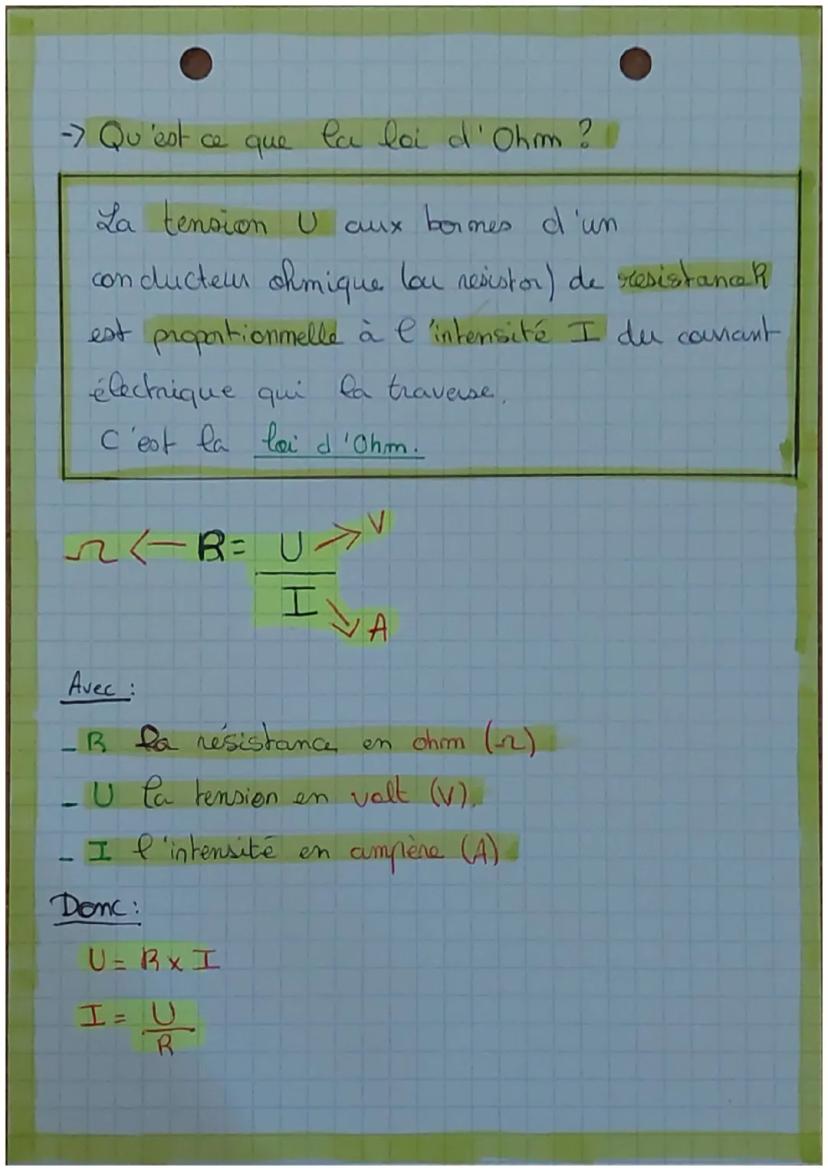 -> Qu'est ce que la loi d'Ohm ?
La tension U aux bornes d'un
conducteur ohmique (ou resistor) de resistance R
est proportionnelle à l'intensité I du courant
électrique qui la traverse.
C'est la loi d'Ohm.
Ω <— R = U/I —> V
—> A
Avec :
- R la résistance en ohm (Ω)
- U la tension en volt (V).
- I l'intensité en ampère (A)
Donc :
U = R x I
I = U/R